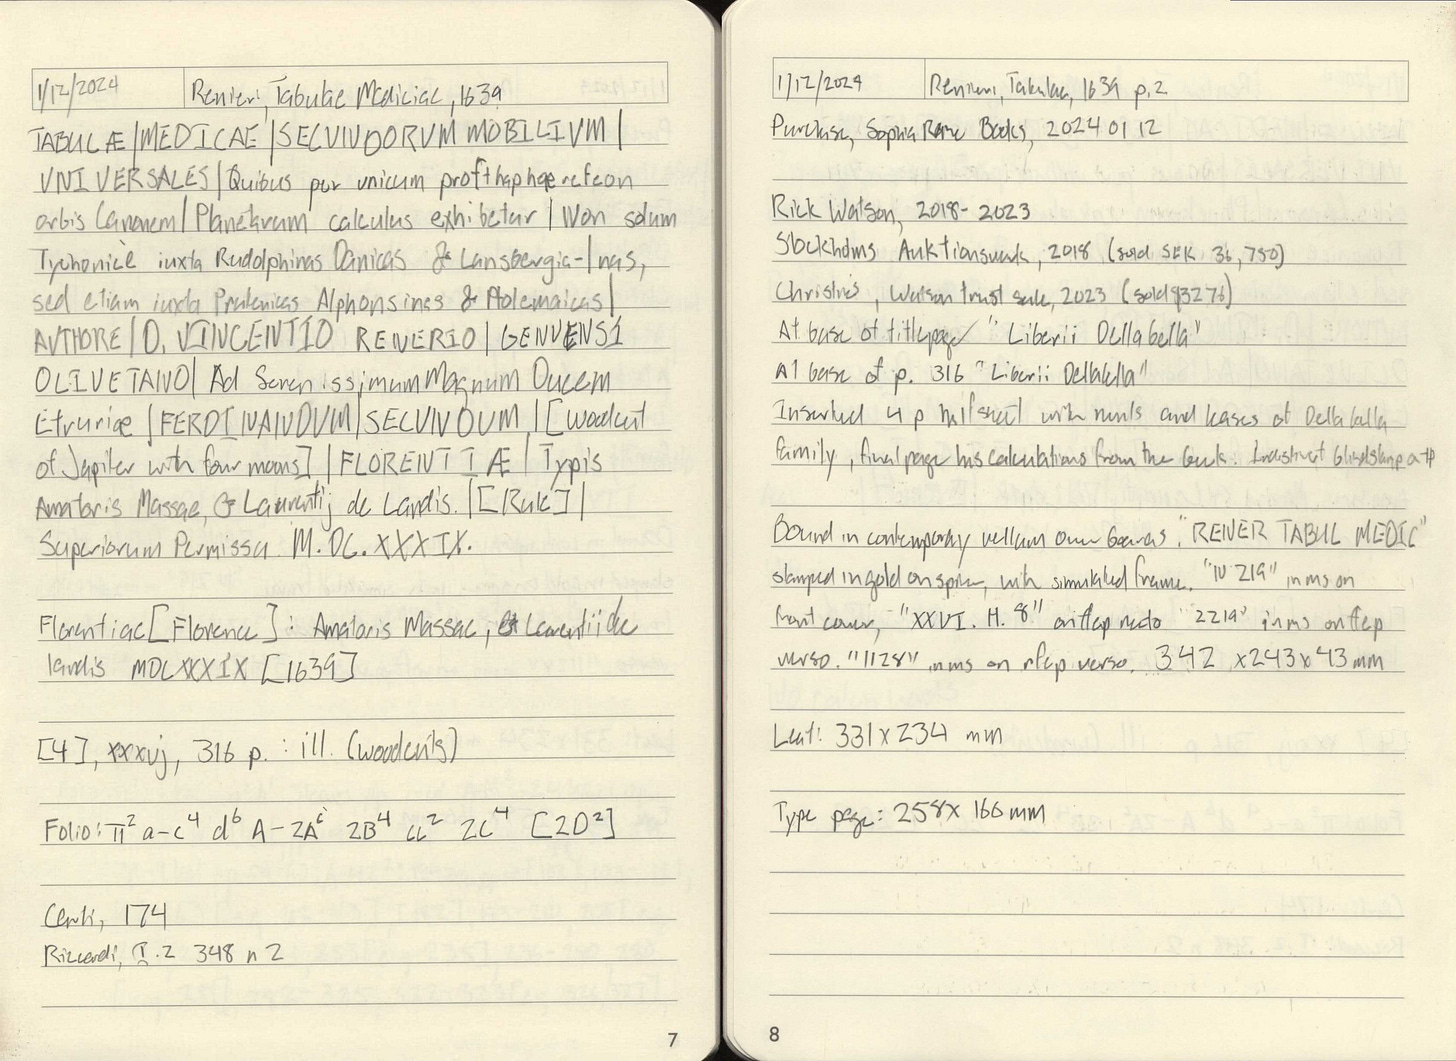 1/12/2024 Renieri, Tabulae Mediciae, 1639
TABULÆ|MEDICAE|SECUNDORVM MOBILIVM|
VNIVERSALES|Quibus per unicum prosthaphaereseon
orbis Canonem|Planetarum calculus exhibetur|Non solum
Tychonicè iuxta Rudolphinas Danicas & Lansbergia-|nas,
sed etiam iuxta Prutenicas Alphonsines & Ptolemaicas|
AVTHORE|D. VINCENTIO RENERIO|GENVENSI
OLIVETANO| Ad Serenissimum Magnum Ducem
Etruriæ|FERDINANDVM|SECUNDUM|[Woodcut
of Jupiter with four moons]|FLORENTIÆ|Typis
Amatoris Massae, & Laurentij de Landis.|[Rule]|
Superiorum Permissu M.DC.XXXIX.
Florentiae [Florence]: Amatoris Massae, & Laurentii de
landis MDCXXXIX [1639]
[4], xxxvj, 316 p. : ill. (woodcuts)
Folio: π² a-c⁴ d⁶ A-2A⁶ 2B⁴ 2C⁴ [2D²]
Centi, 174
Riccardi, I.2 348 n 2
7
1/12/2024 Renieri, Tabulae, 1639 p.2
Purchase, Sophia Rare Books, 2024 01 12
Rick Watson, 2018-2023
Stockholms Auktionsverk, 2018 (sold SEK 36,750)
Christies, Watson trust sale, 2023 (sold $3276)
At base of titlepage "Liberii Dellabella"
At base of p. 316 "Liberii Dellabella"
Inserted 4 p half sheet with rents and leases of Della bella
family, final page his calculations from the book. Indistinct blindstamp
Bound in contemporary vellum over boards. "REINER TABUL MEDIC"
stamped in gold on spine, with simulated frame. "IV 219" in ms on
front cover, "XXVI. H. 8" on ffep recto "2219" in ms on ffep
verso. "1128" in ms on rfep verso. 342 x243x43 mm
Leaf: 331x234 mm
Type page: 258x166 mm
8